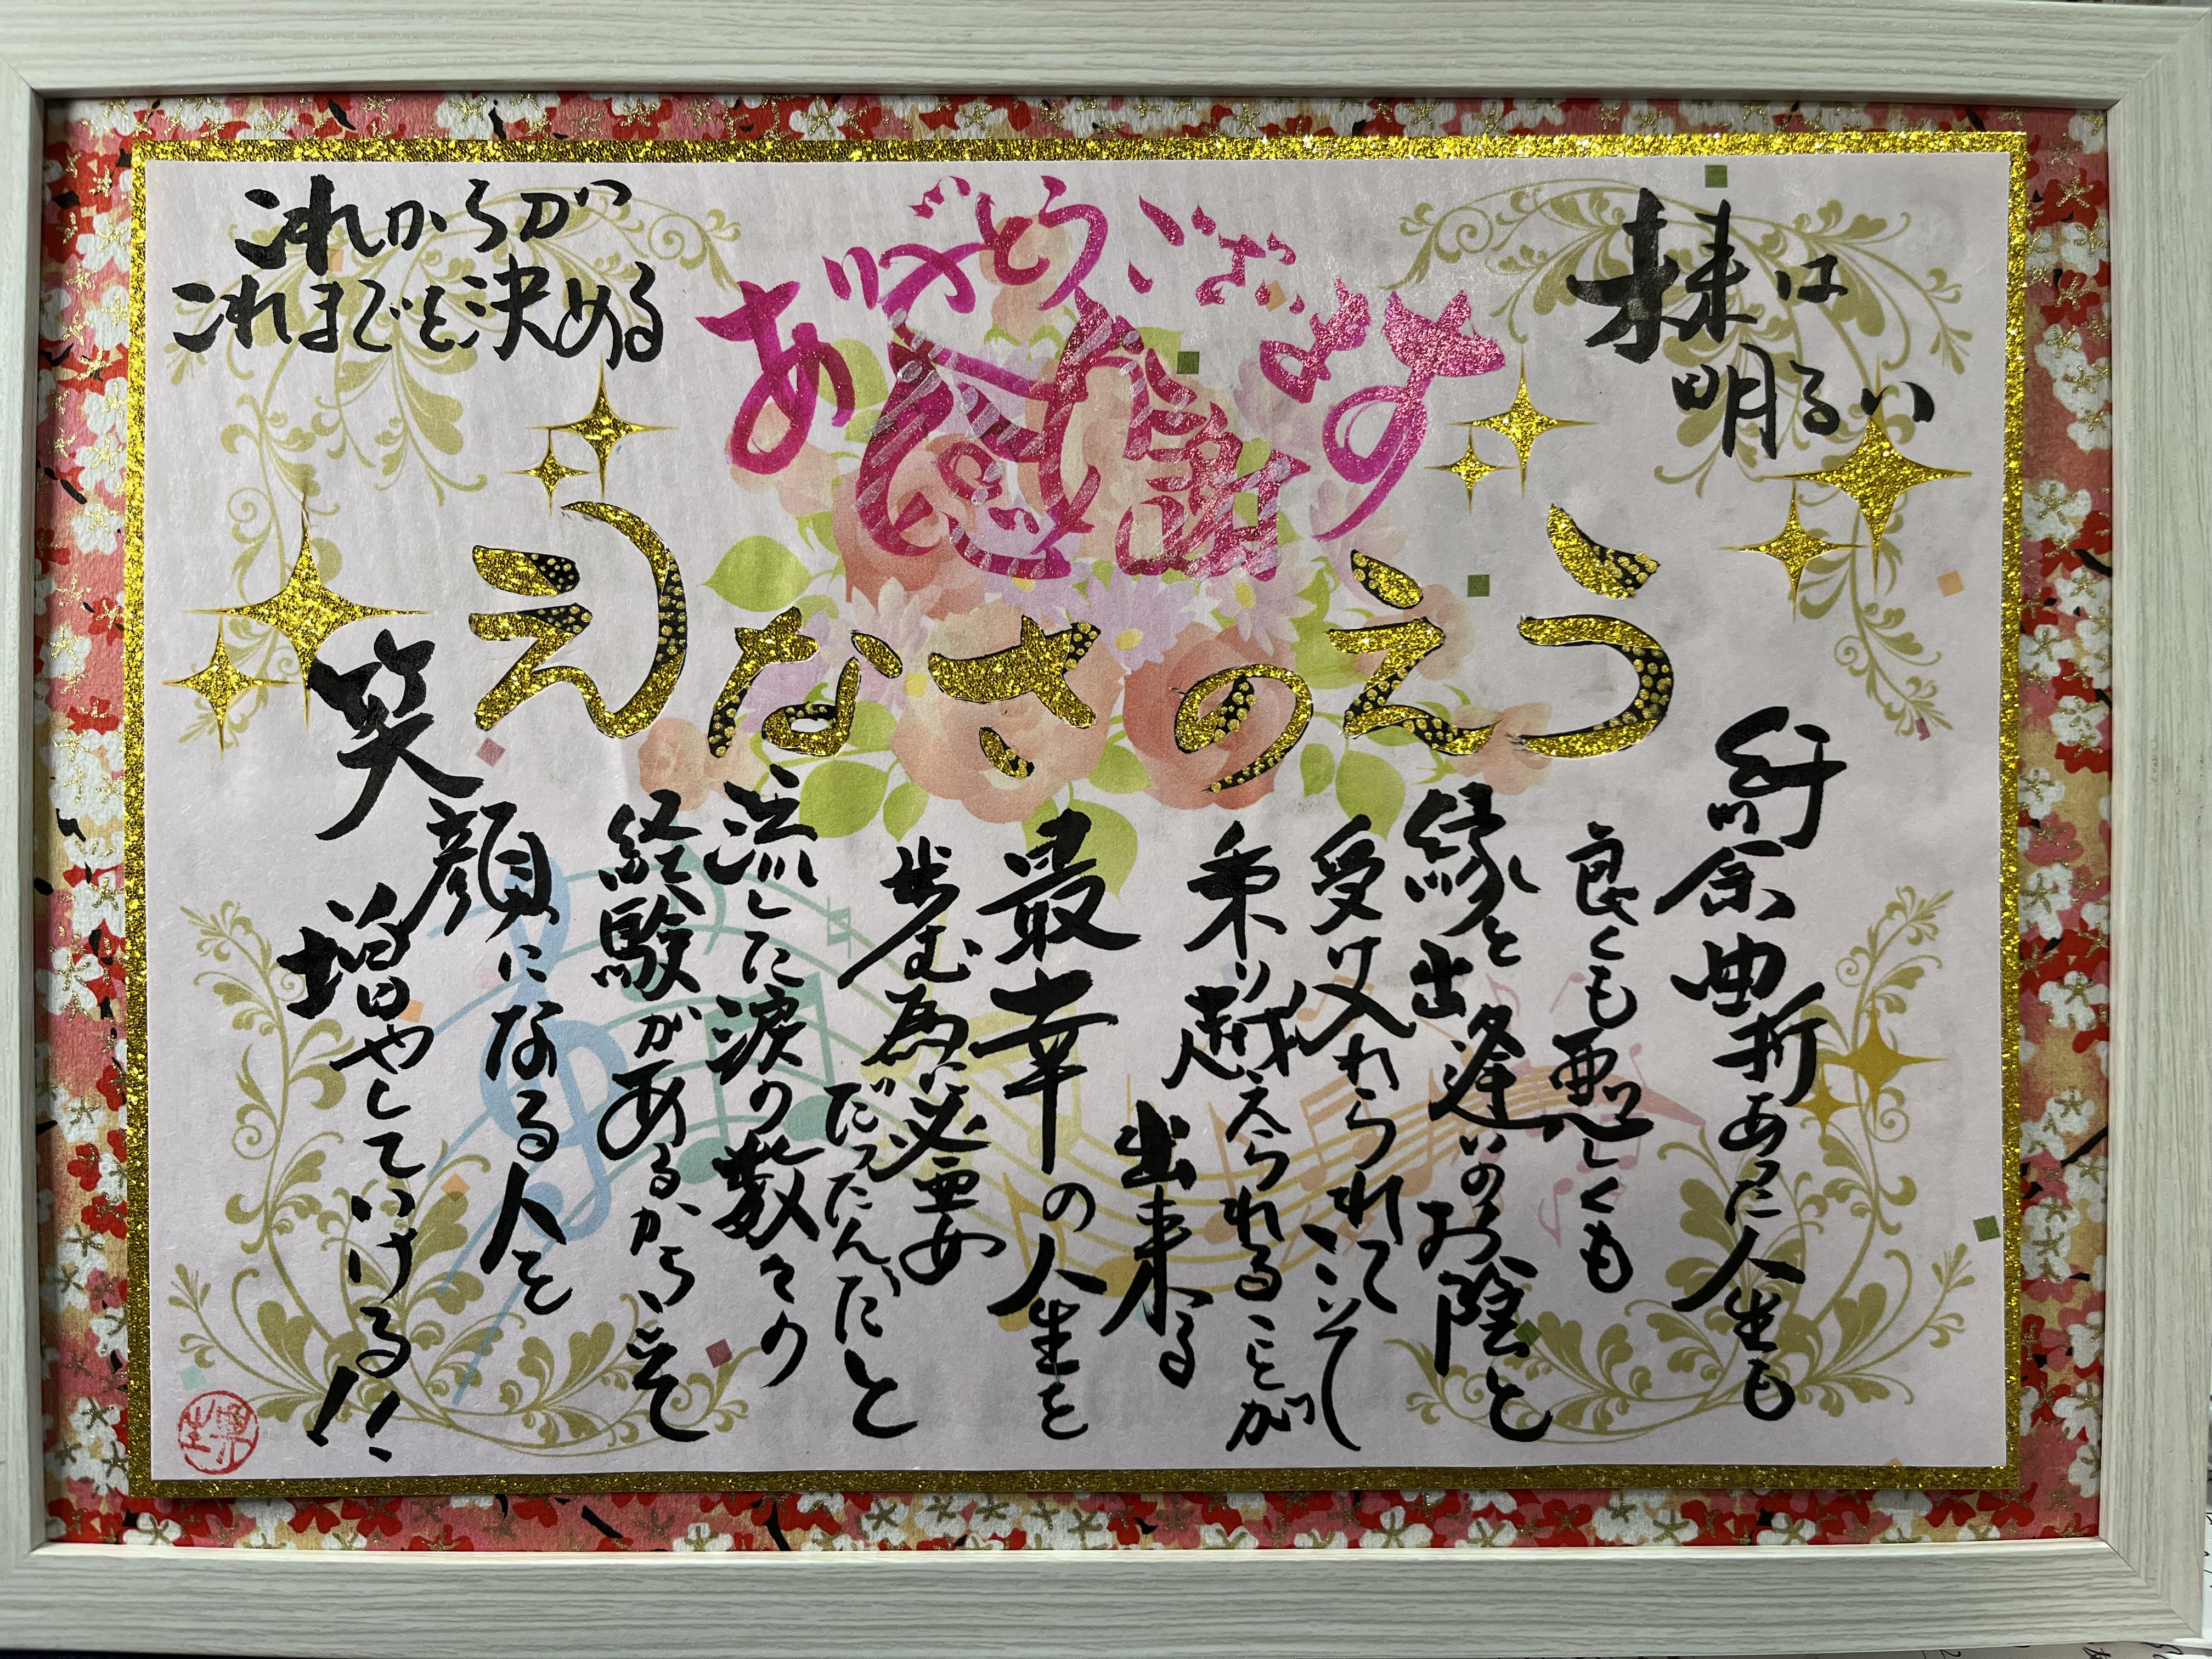 未来は
明るい
ありがとうございます
感謝
これからが
これまでを決める
うえのさなえ
紆余曲折あった人生も
良くも悪しくも
縁と出逢いのお陰と
受け入れられてこそ
乗り越えられることが
出来る
最幸の人生を
歩む為に必要
だったんだと
流した涙の数々の
経験があるからこそ
笑顔になる人を
増やしていける!!